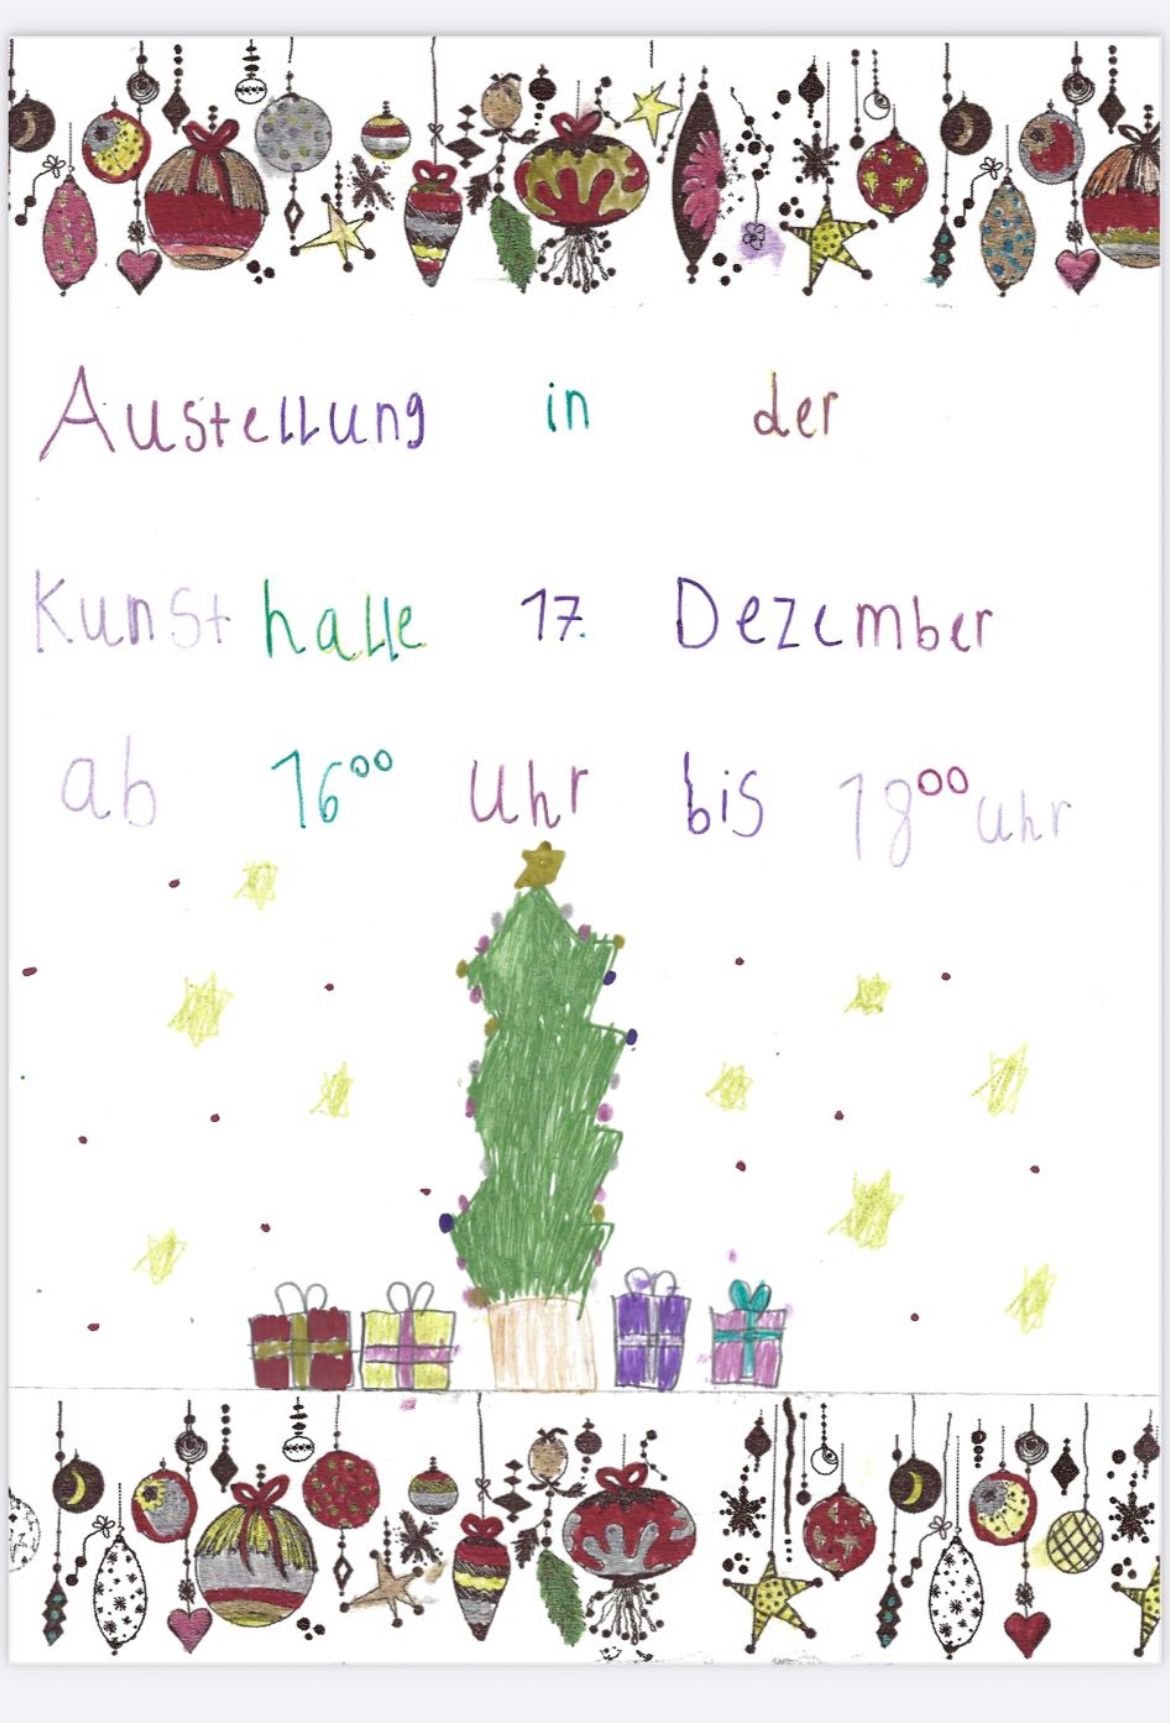 Austellung in der
Kunsthalle 17. Dezember
ab 16⁰⁰ Uhr bis 18⁰⁰ Uhr